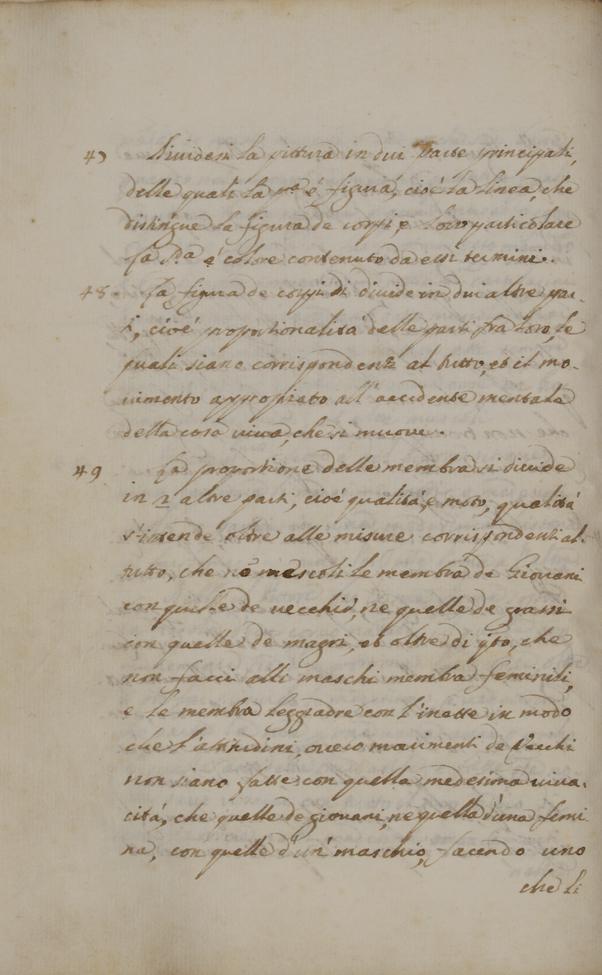 47 Dividesi la pittura in dui Parte principali,
delle quali la pᵃ é figura, cioé la linea, che
distingue la figura de corpi, e loro particolare
la 2.ᵃ é colore contenuto da essi termini.
48. La figura de corpi si divide in dui altre par-
ti, cioé proportionalitá delle parti fra loro, le
quali siano corrispondenti al tutto, et il mo-
vimento appropiato all'accidente mentale
della cosa viva, che si muove.
49 La proportione delle membra si divide
in 2 altre parti, cioé qualitá, e moto, qualitá
s'intende oltre alle misure corrispondenti al
tutto, che nō mescoli le membra de Giovani
con quelle de vecchi, ne quelle de grassi
con quelle de magri, et oltre di q̄sto, che
non facci alli maschi membra feminili,
e le membra leggiadre con l'inette in modo
che l'attitudini, overo movimenti de Vecchi
non siano fatte con quella medesima viva-
citá, che quelle de giovani, ne quella d'una femi
na, con quelle d'un maschio, facendo uno
che li